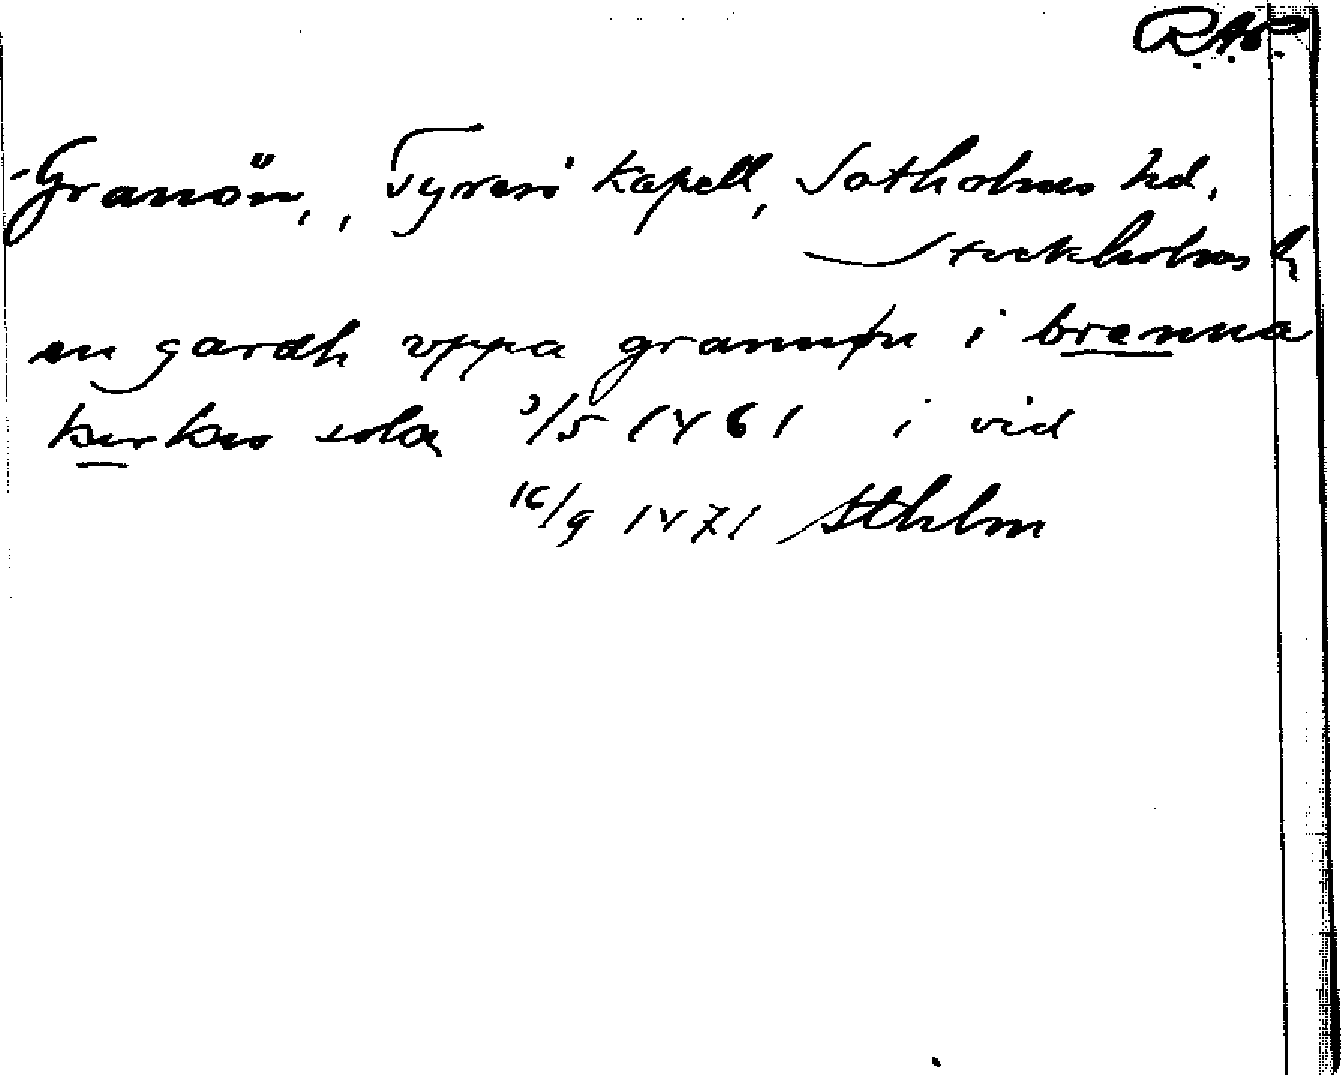 R.A.P.
Granön, , Tyresö kapell, Sotholms hd.
Stockholms l
en gardh vppa grannøn i brenna
kirkio sokn 3/5 1461 i vid
16/9 1471 Sthlm